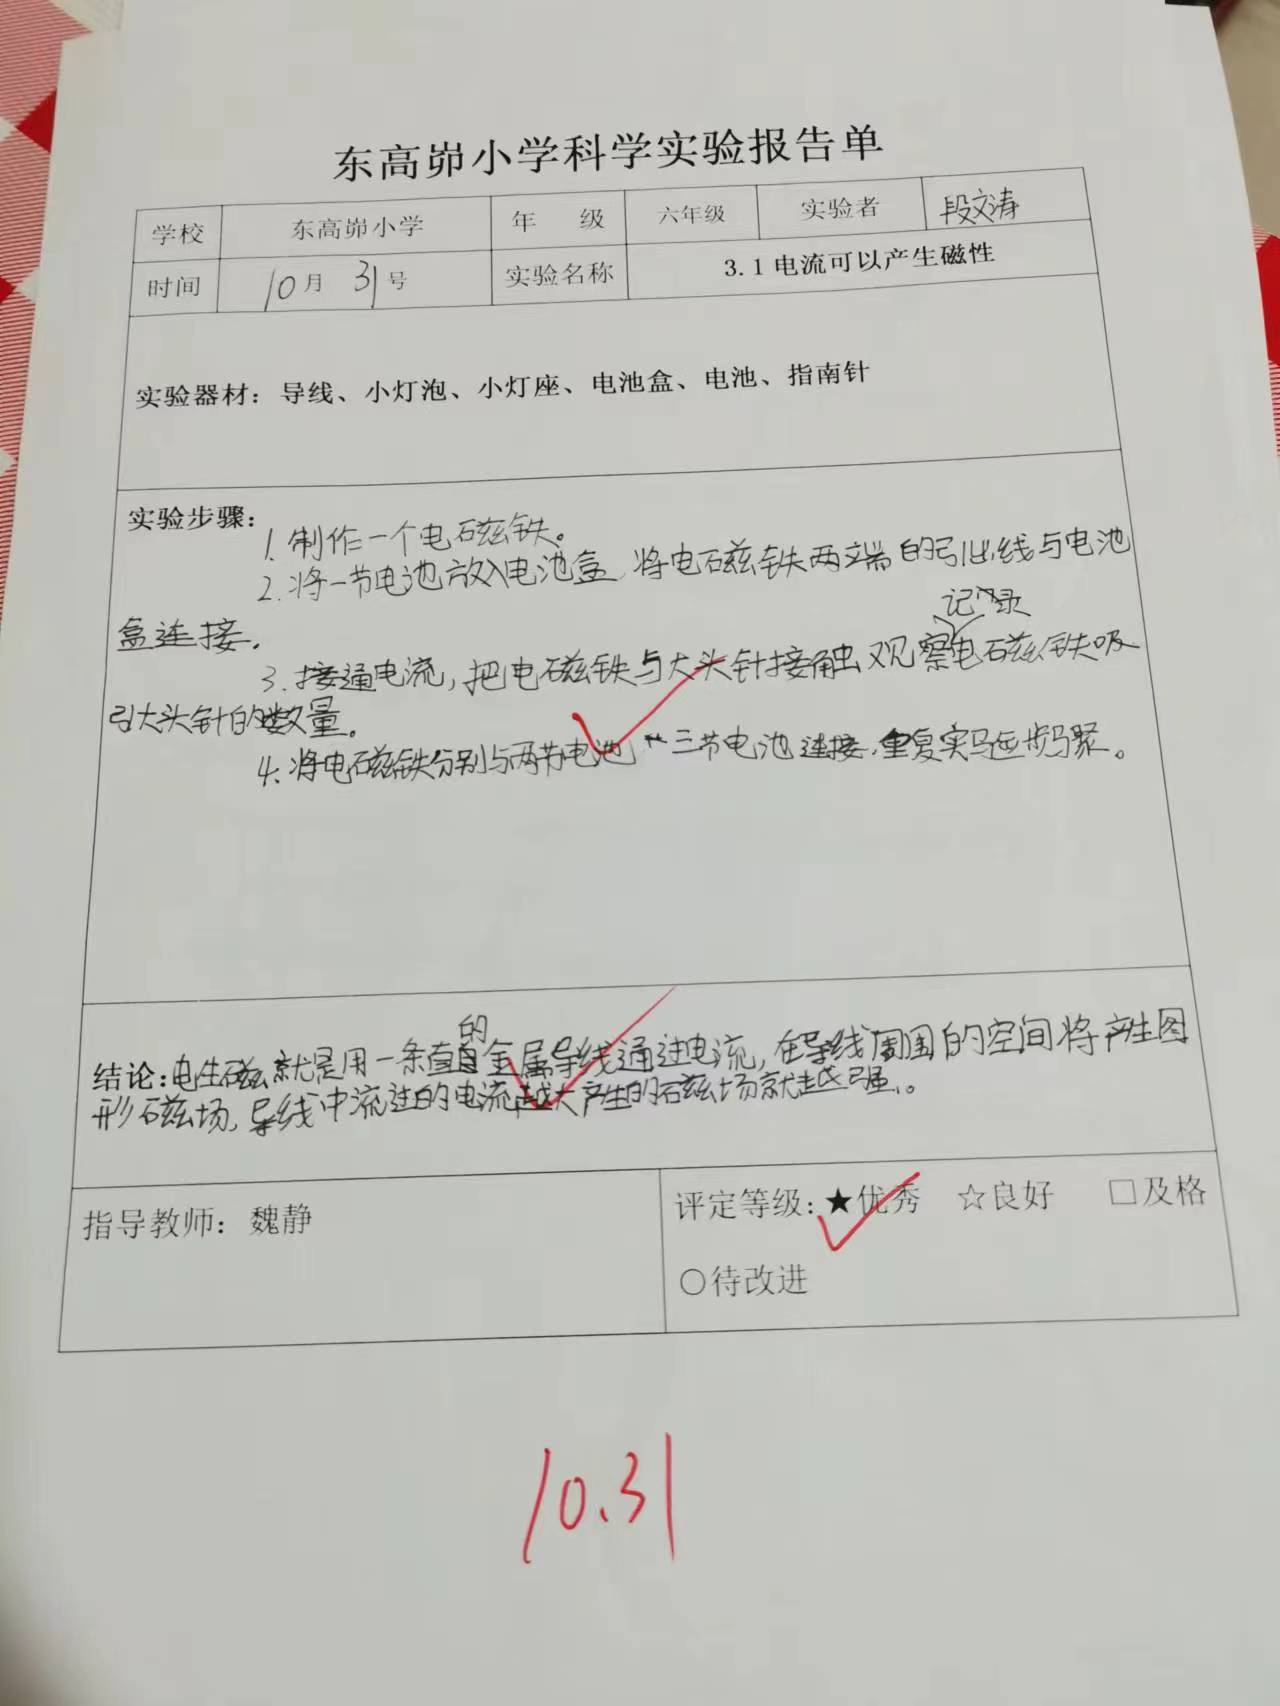 东高峁小学科学实验报告单
学校 东高峁小学 年 级 六年级 实验者 段文涛
时间 10月 31号 实验名称 3.1 电流可以产生磁性
实验器材：导线、小灯泡、小灯座、电池盒、电池、指南针
实验步骤：
1. 制作一个电磁铁。
2. 将一节电池放入电池盒，将电磁铁两端的引出线与电池
盒连接.
记录
3. 接通电流，把电磁铁与大头针接触观察电磁铁吸
引大头针的数量。
4. 将电磁铁分别与两节电池 三节电池连接，重复实验步骤。
的
结论：电生磁就是用一条直金属导线通过电流，在导线周围的空间将产生图
形磁场，导线中流过的电流越大产生的磁场就越强。
指导教师：魏静
评定等级：★优秀 ☆良好 □及格
○待改进
10.31